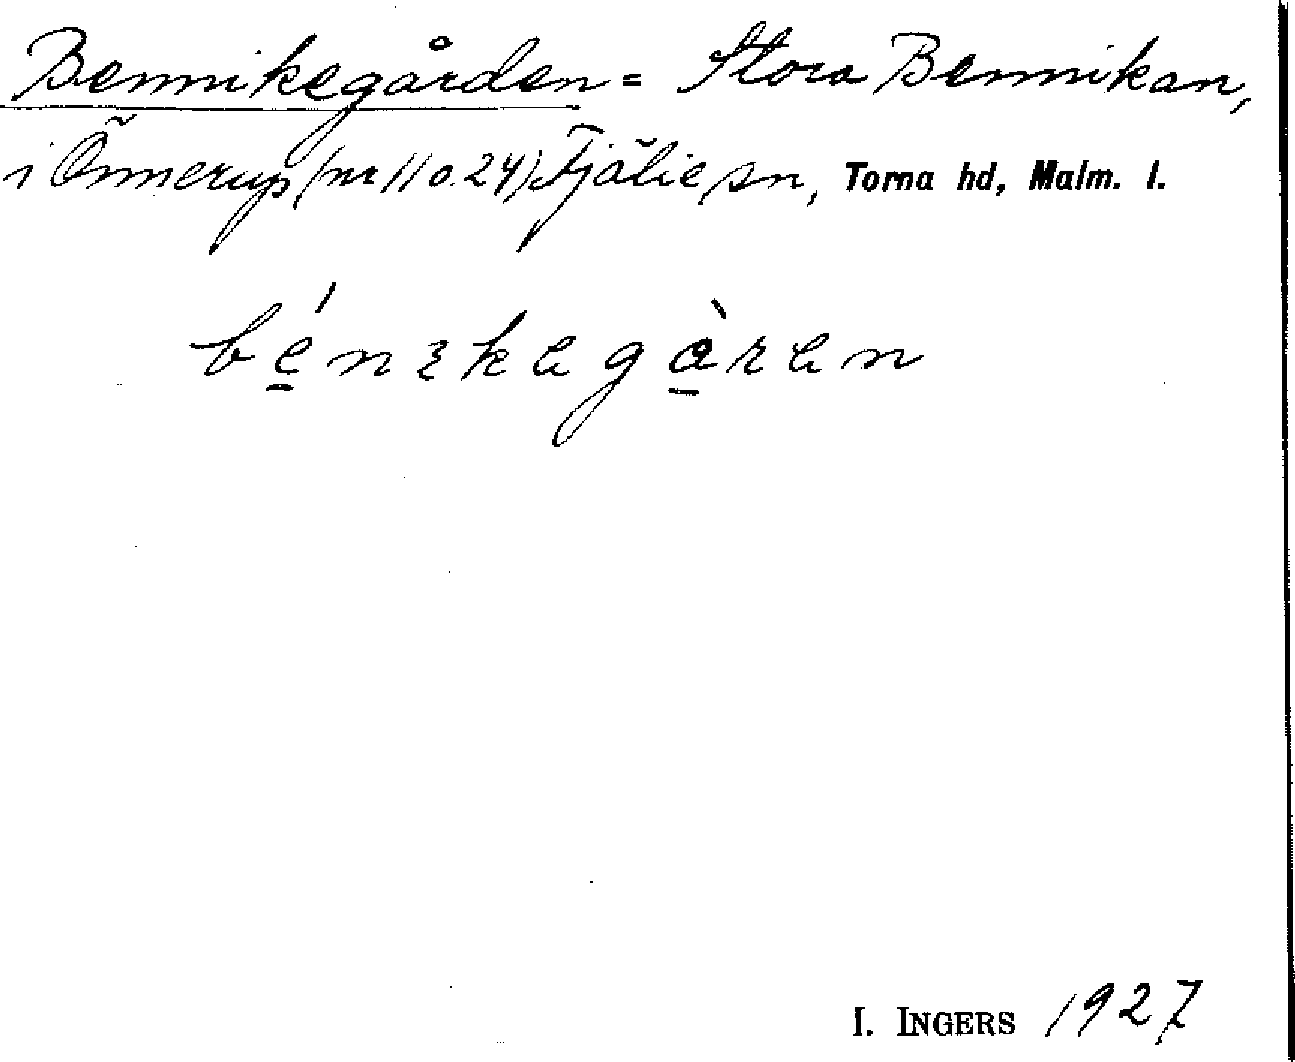 Bennikegården = Stora Bennikan,
i Önnerup (nr 11 o. 24) Fjälie sn, Torna hd, Malm. l.
I. INGERS 1927